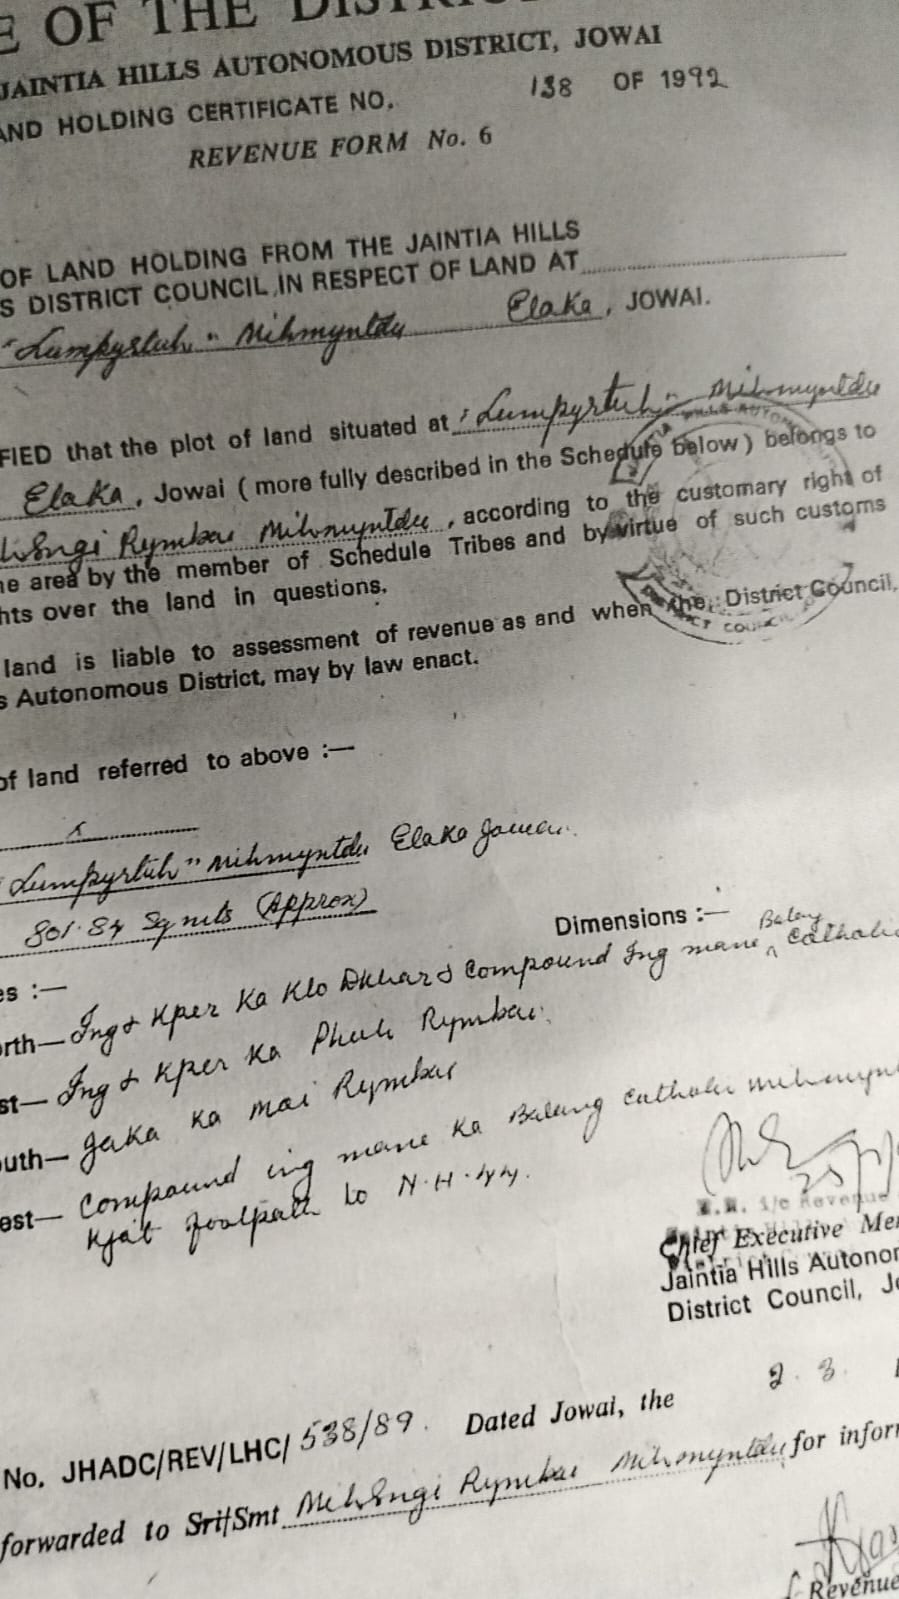 E OF THE DISTRIC
JAINTIA HILLS AUTONOMOUS DISTRICT, JOWAI
AND HOLDING CERTIFICATE NO. 138 OF 1992
REVENUE FORM No. 6
OF LAND HOLDING FROM THE JAINTIA HILLS
S DISTRICT COUNCIL IN RESPECT OF LAND AT
"Lumpyrtuh" Mihmyntdu Elaka, JOWAI.
FIED that the plot of land situated at "Lumpyrtuh" Mihmyntdu
Elaka, Jowai ( more fully described in the Schedule below ) belongs to
Rymbai Mihmyntdu, according to the customary right of
ne area by the member of Schedule Tribes and by virtue of such customs
hts over the land in questions.
land is liable to assessment of revenue as and when the District Council,
s Autonomous District, may by law enact.
of land referred to above :—
x
"Lumpyrtuh" Mihmyntdu Elaka Jowai.
801.84 Sq mts (Approx)
Dimensions :—
es :—
orth— Ing & Kper Ka Klo Dkhar & Compound Ing mane Balang Catholic
st— Ing & Kper Ka Phuh Rymbai.
outh— Jaka Ka Mai Rymbai
est— Compound ing mane Ka Balang Catholic Mihmyn
Kjat footpath to N.H.44.
i/c Revenue
Chief Executive Mem
Jaintia Hills Autonom
District Council, Jo
No. JHADC/REV/LHC/538/89. Dated Jowai, the 2.3.
forwarded to Sri/Smt Rymbai Mihmyntdu for inform
Revenue